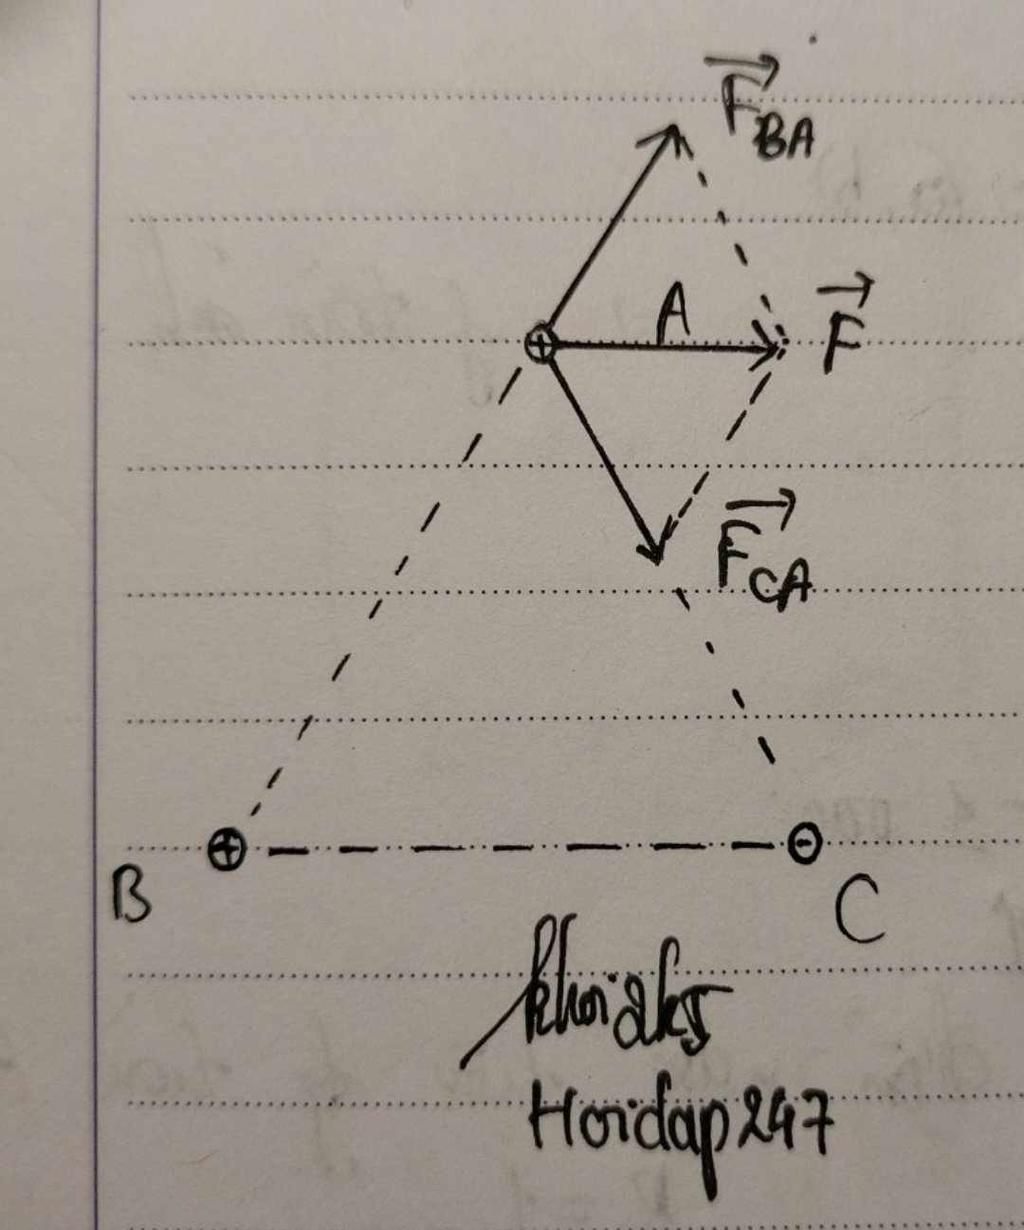 F_BA
A
F
F_CA
+
+
-
B
C
khoi2k5
Hoidap247